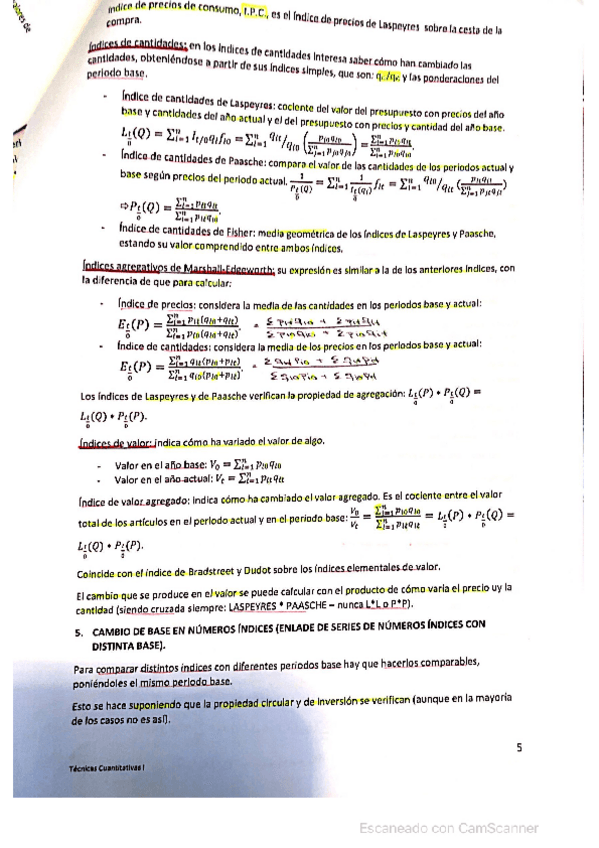 índice de precios de consumo, I.P.C., es el índice de precios de Laspeyres sobre la cesta de la
compra.
Índices de cantidades: en los índices de cantidades interesa saber cómo han cambiado las
cantidades, obteniéndose a partir de sus índices simples, que son: qₜ/q₀ y las ponderaciones del
periodo base.
- Índice de cantidades de Laspeyres: cociente del valor del presupuesto con precios del año
base y cantidades del año actual y el del presupuesto con precios y cantidad del año base.
- Índice de cantidades de Paasche: compara el valor de las cantidades de los periodos actual y
base según precios del periodo actual.
- Índice de cantidades de Fisher: media geométrica de los índices de Laspeyres y Paasche,
estando su valor comprendido entre ambos índices.
Índices agregativos de Marshall-Edgeworth: su expresión es similar a la de los anteriores índices, con
la diferencia de que para calcular:
- Índice de precios: considera la media de las cantidades en los periodos base y actual:
- Índice de cantidades: considera la media de los precios en los periodos base y actual:
Los índices de Laspeyres y de Paasche verifican la propiedad de agregación:
Índices de valor: indica cómo ha variado el valor de algo.
- Valor en el año base:
- Valor en el año actual:
Índice de valor agregado: indica cómo ha cambiado el valor agregado. Es el cociente entre el valor
total de los artículos en el periodo actual y en el periodo base:
Coincide con el índice de Bradstreet y Dudot sobre los índices elementales de valor.
El cambio que se produce en el valor se puede calcular con el producto de cómo varía el precio uy la
cantidad (siendo cruzada siempre: LASPEYRES * PAASCHE – nunca L*L o P*P).
5. CAMBIO DE BASE EN NÚMEROS ÍNDICES (ENLADE DE SERIES DE NÚMEROS ÍNDICES CON
DISTINTA BASE).
Para comparar distintos índices con diferentes periodos base hay que hacerlos comparables,
poniéndoles el mismo periodo base.
Esto se hace suponiendo que la propiedad circular y de inversión se verifican (aunque en la mayoría
de los casos no es así).
5
Técnicas Cuantitativas I
Escaneado con CamScanner